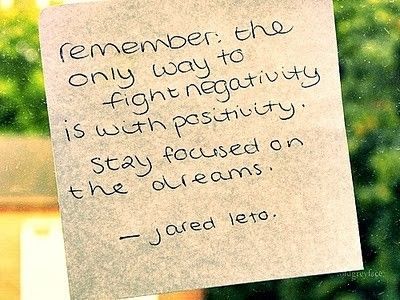 remember: the
only way to
fight negativity
is with positivity.
stay focused on
the dreams.
– jared leto.